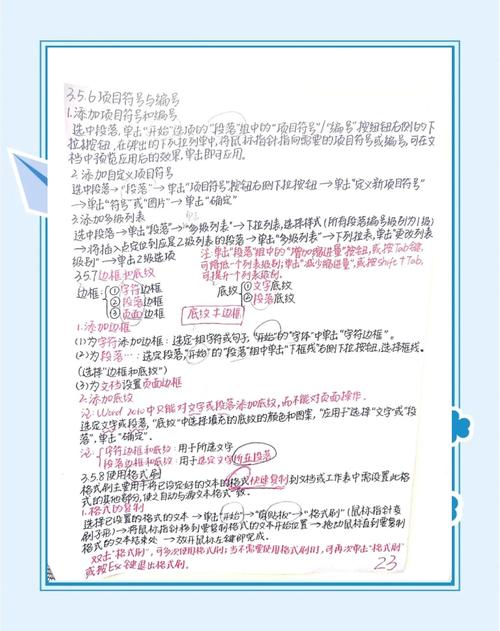 3.5.6项目符号与编号
1.添加项目符号和编号
选中段落,单击"开始"选项的"段落"组中的"项目符号"/"编号"按钮右侧的下
拉按钮,在弹出的下列拉列单中,将鼠标指针指向需要的项目符号或编号,可在文
档中预览应用后的效果,单击即可应用。
2.添加自定义项目符号
选中段落→"段落"→单击"项目符号"按钮右侧下拉按钮→单击"定义新项目符号"
→单击"符号"或"图片"→单击"确定"
3.添加多级列表
选中段落→单击"段落"→"多级列表"→下拉列表,选择样式(所有段落编号级别为1级)
→将插入点定位到应是2级列表的段落→单击"多级列表"→下列拉表,单击"更改列表
级别"→单击2级选项
注:单击"段落"组中的"增加缩进量"按钮,或按Tab键,
可降低一个列表级别;单击"减少缩进量",或按Shift+Tab,
可提升一个列表级别.
3.5.7边框和底纹
边框:①字符边框
②段落边框
③页面边框
底纹:①文字底纹
②段落底纹
底纹≠边框
1.添加边框
(1)为字符添加边框:选定一组字符或句子,"开始"的"字体"中单击"字符边框"。
(2)为段落…:选定段落,"开始"的"段落"组中单击"下框线"右侧下拉按钮,选择框线。
(选择"边框和底纹")
(3)为文档设置页面边框
2.添加底纹
注:Word 2010中只能对文字或段落添加底纹,而不能对页面操作.
选定文字或段落,"底纹"中选择填充的底纹的颜色和图案,"应用于"选择"文字"或"段
落",单击"确定".
注:字符边框和底纹:用于所选文字
段落边框和底纹:用于选定文字所在段落
3.5.8使用格式刷
格式刷主要用于将已设定好的文本的格式快速复制到文档或工作表中需设置此格
式的其他部分,使之自动与源文本格式一致.
1.格式的复制
选择已设置的格式的文本→单击"开始"→"剪贴板"→"格式刷"(鼠标指针变
刷子形)→将鼠标指针移到要复制格式的文本开始设置→拖动鼠标直到要复制
格式的文本结束处→放开鼠标左键即完成.
双击"格式刷",可多次使用格式刷;当不需要使用格式刷时,可再次单击"格式刷"
或按Esc键退出格式刷.
23